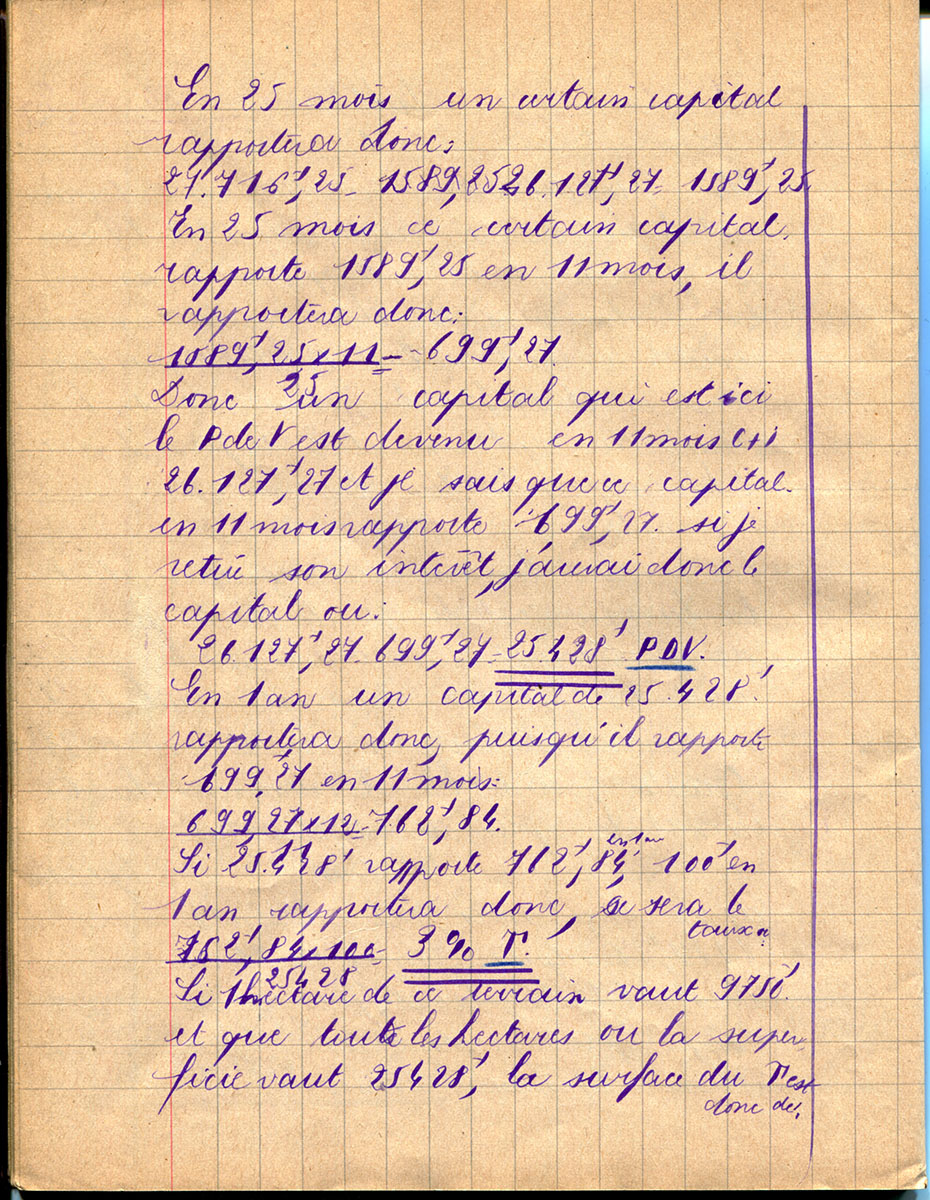 En 25 mois un certain capital
rapportera donc:
27.716f,25 - 1589,25 26.127f,27 - 1589f,25
En 25 mois ce certain capital
rapporte 1589f,25 en 11 mois, il
rapportera donc:
1589f,25 x 11 = 699f,27.
25
Donc un capital qui est ici
le P de V est devenu en 11 mois C+i
26.127f,27 et je sais que ce capital
en 11 mois rapporte 699f,27. si je
retire son intérêt, j'aurai donc le
capital ou:
26.127f,27 - 699f,27 = 25.428f PDV.
En 1 an un capital de 25.428f
rapportera donc, puisqu'il rapporte
699,27 en 11 mois:
699,27 x 12 = 762f,84.
11
Si 25.428f rapporte 762f,84, en 1 an 100f en
1 an rapportera donc, ce sera le
taux:
762f,84 x 100 = 3% T.
25428
Si 1 hectare de ce terrain vaut 9750f
et que touts les hectares ou la super-
ficie vaut 25428f, la surface du T est
donc de: